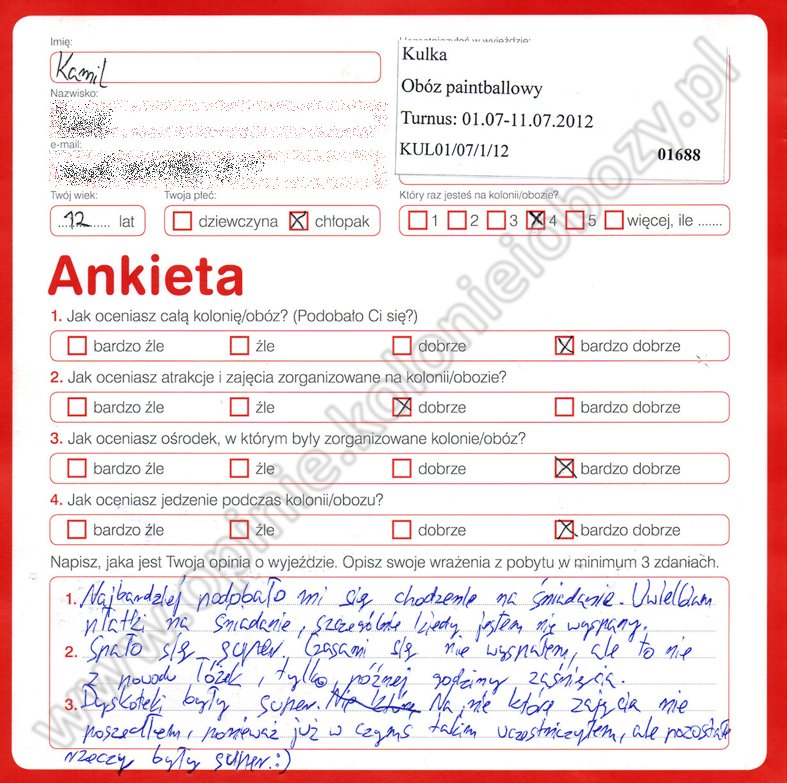 Imię:
Kamil
Nazwisko:
e-mail:
Kulka
Obóz paintballowy
Turnus: 01.07-11.07.2012
KUL01/07/1/12 01688
Twój wiek: Twoja płeć: Który raz jesteś na kolonii/obozie?
12 lat dziewczyna chłopak 1 2 3 4 5 więcej, ile .......
Ankieta
1. Jak oceniasz całą kolonię/obóz? (Podobało Ci się?)
bardzo źle źle dobrze bardzo dobrze
2. Jak oceniasz atrakcje i zajęcia zorganizowane na kolonii/obozie?
bardzo źle źle dobrze bardzo dobrze
3. Jak oceniasz ośrodek, w którym były zorganizowane kolonie/obóz?
bardzo źle źle dobrze bardzo dobrze
4. Jak oceniasz jedzenie podczas kolonii/obozu?
bardzo źle źle dobrze bardzo dobrze
Napisz, jaka jest Twoja opinia o wyjeździe. Opisz swoje wrażenia z pobytu w minimum 3 zdaniach.
1. Najbardziej podobało mi się chodzenie na śniadanie. Uwielbiam
płatki na śniadanie, szczególnie kiedy jestem nie wyspany.
2. Spało się super. Czasami się nie wyspałem, ale to nie
z powodu łóżek, tylko późnej godziny zaśnięcia.
3. Dyskoteki były super. Na nie które zajęcia nie
poszedłem, ponieważ już w czymś takim uczestniczyłem, ale pozostałe
rzeczy były super.:)
www.opinie.kolonieiobozy.pl